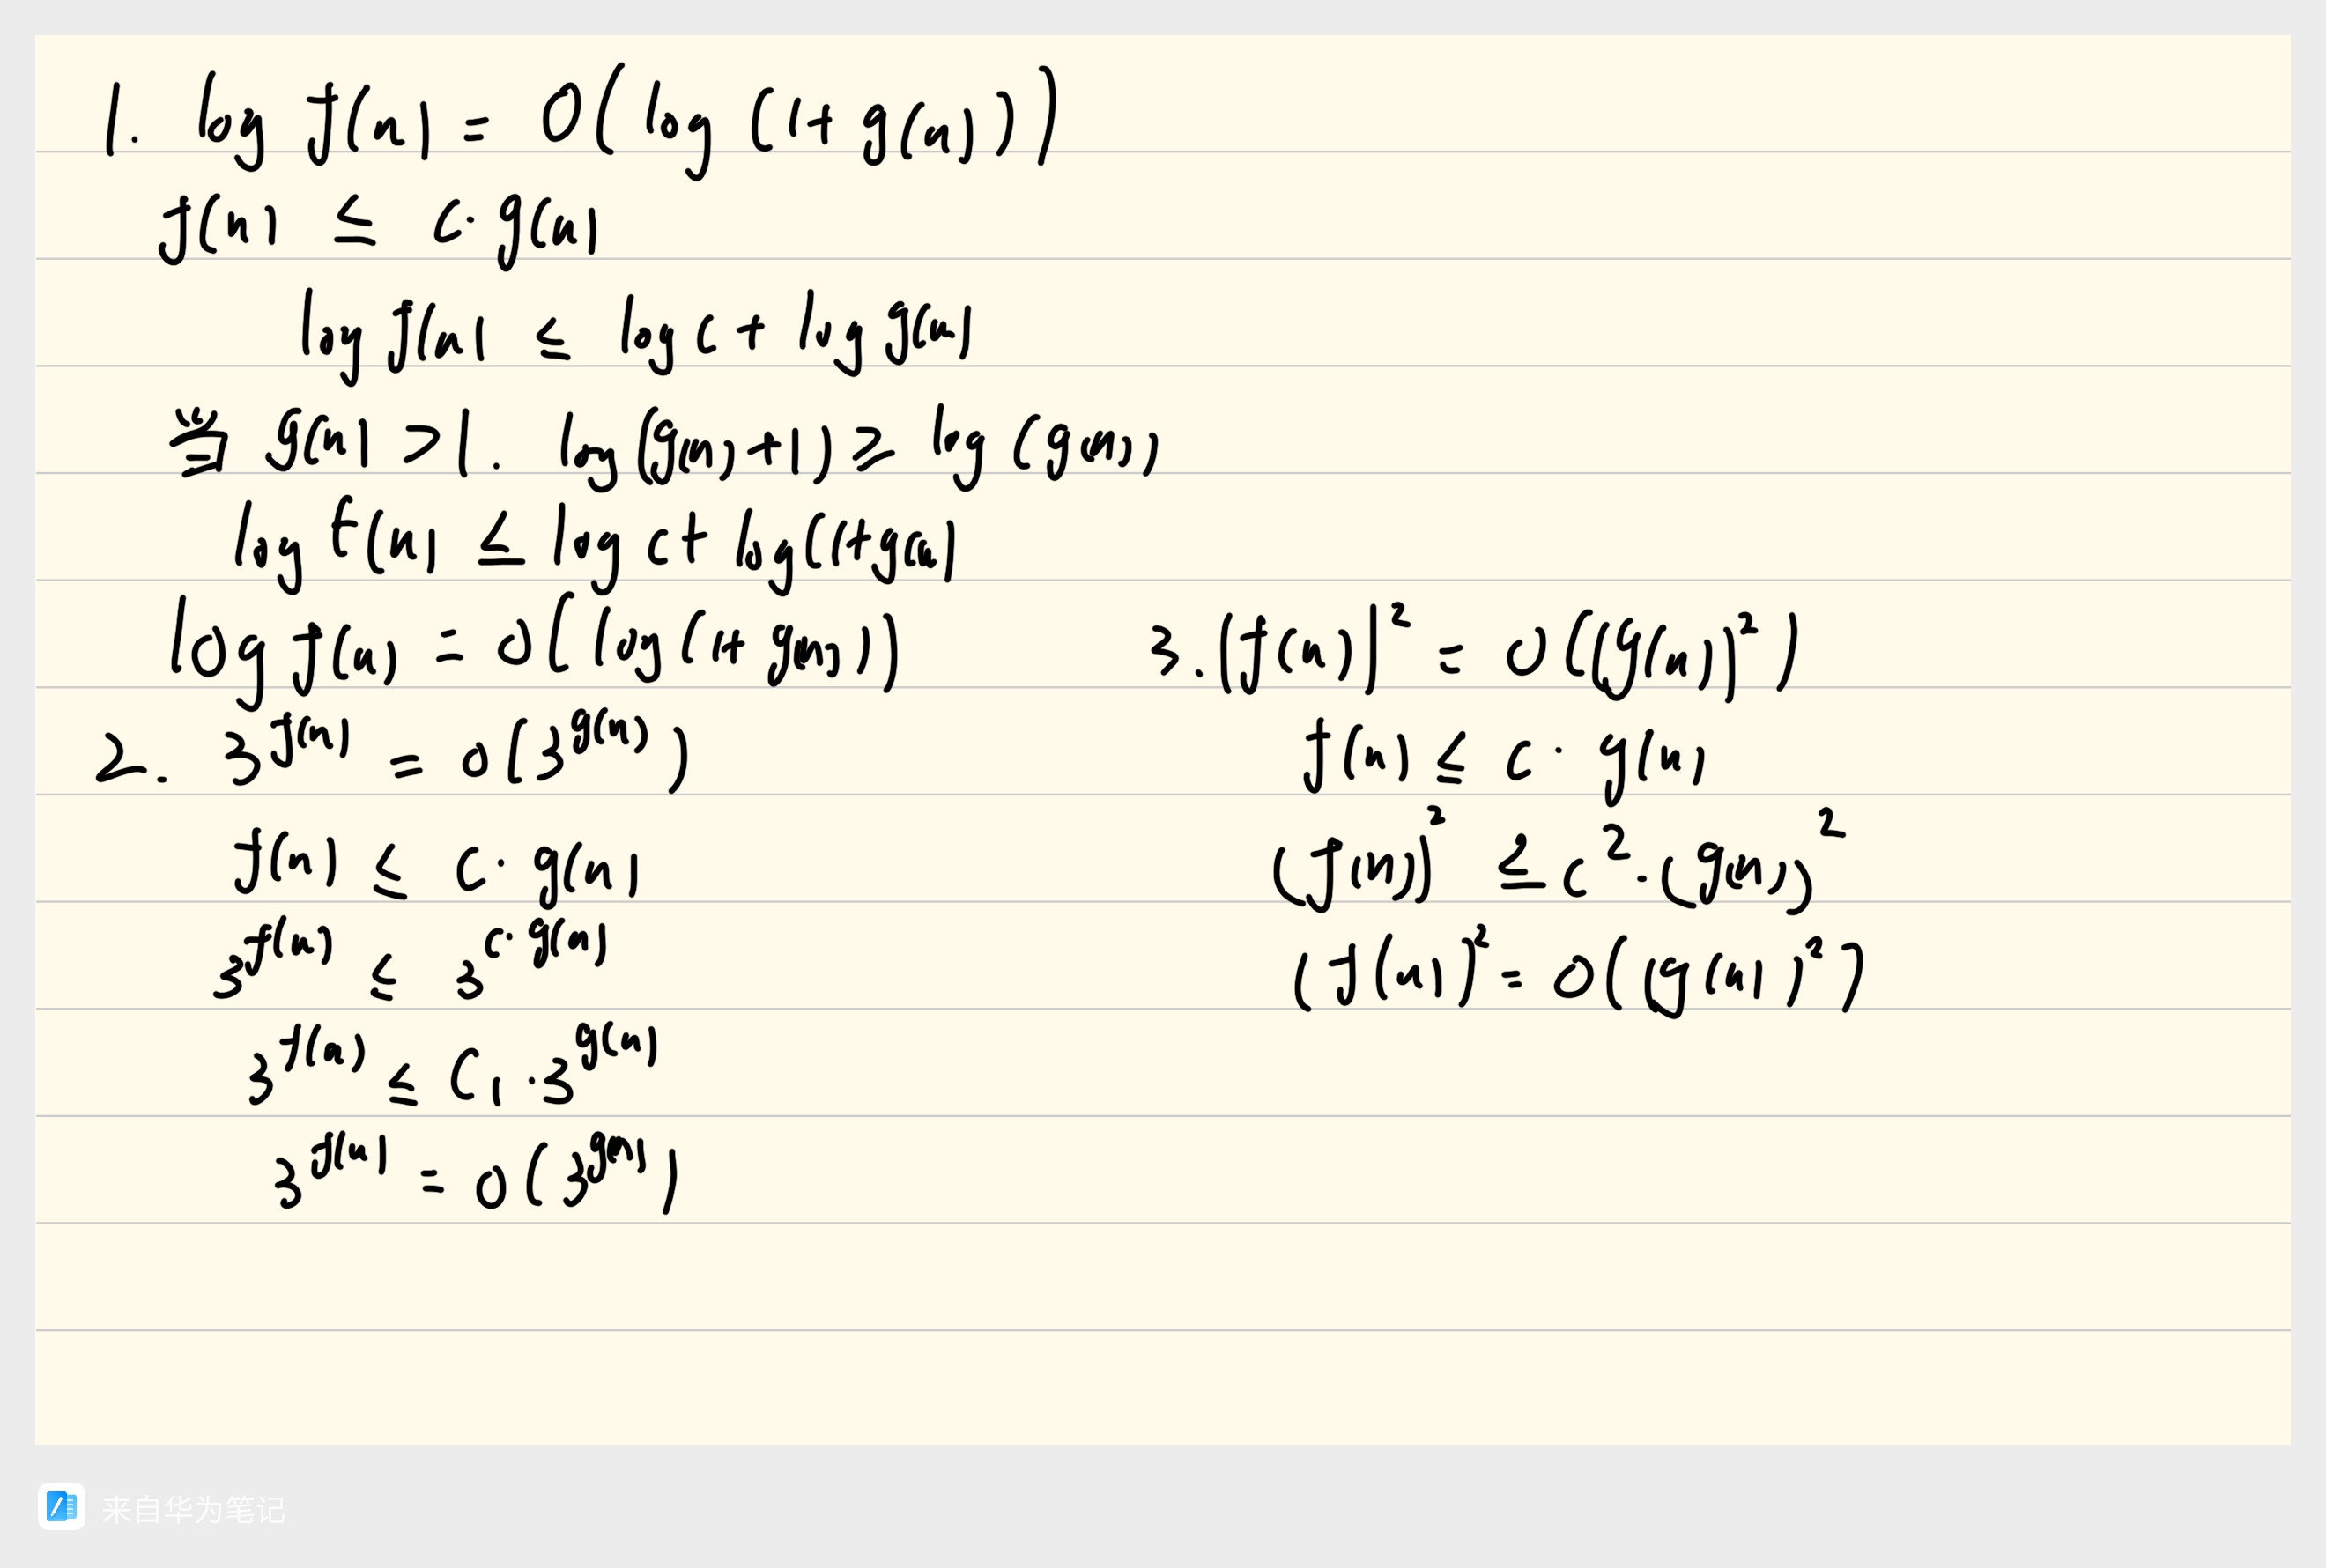 1. log f(n) = O(log(1+g(n)))
f(n) ≤ c·g(n)
log f(n) ≤ log c + log g(n)
当 g(n) >1. log(g(n)+1) ≥ log(g(n))
log f(n) ≤ log c + log(1+g(n)
log f(n) = O(log(1+g(n)))
2. 3^f(n) = O(3^g(n))
f(n) ≤ c·g(n)
3^f(n) ≤ 3^c·g(n)
3^f(n) ≤ C₁·3^g(n)
3^f(n) = O(3^g(n))
3. (f(n))² = O((g(n))²)
f(n) ≤ c·g(n)
(f(n))² ≤ c²·(g(n))²
(f(n))² = O((g(n))²)
来自华为笔记